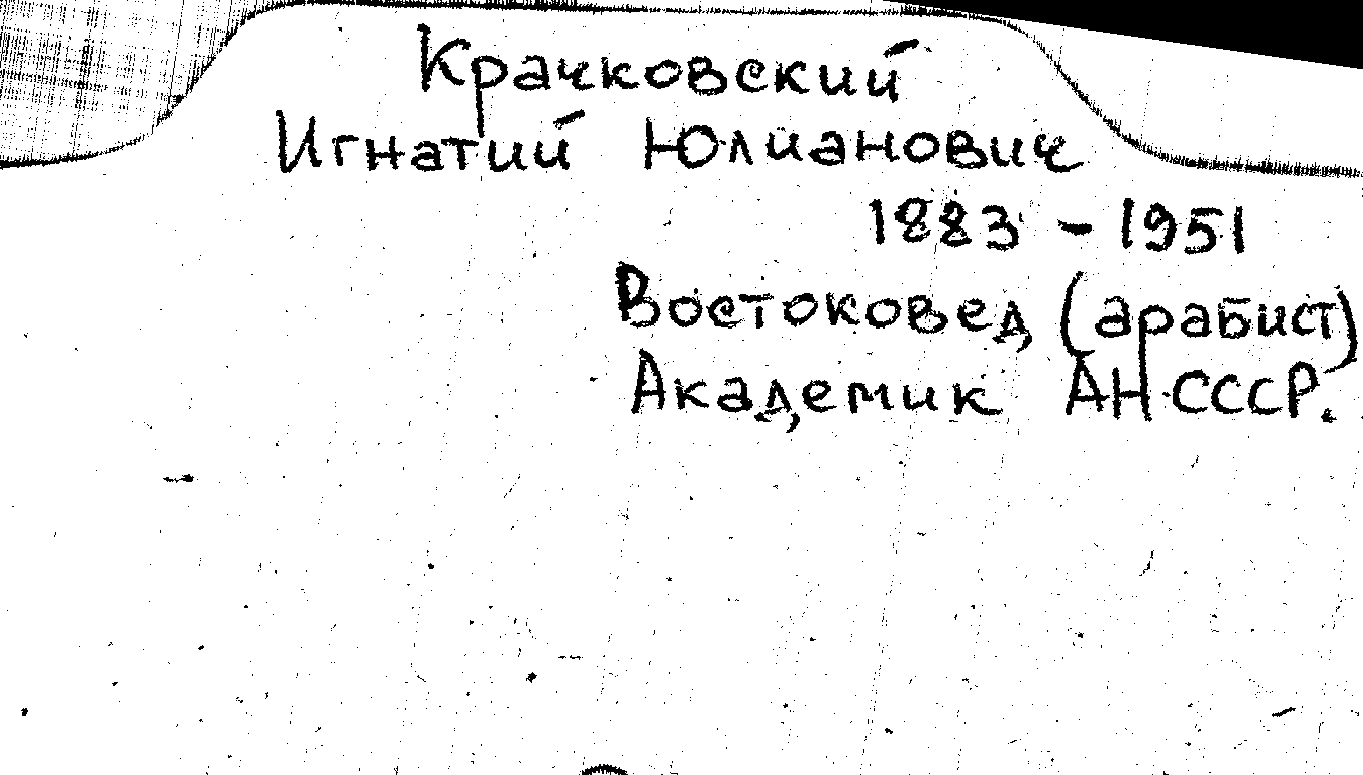 Крачковский
Игнатий Юлианович
1883 - 1951
Востоковед (арабист)
Академик АН СССР.